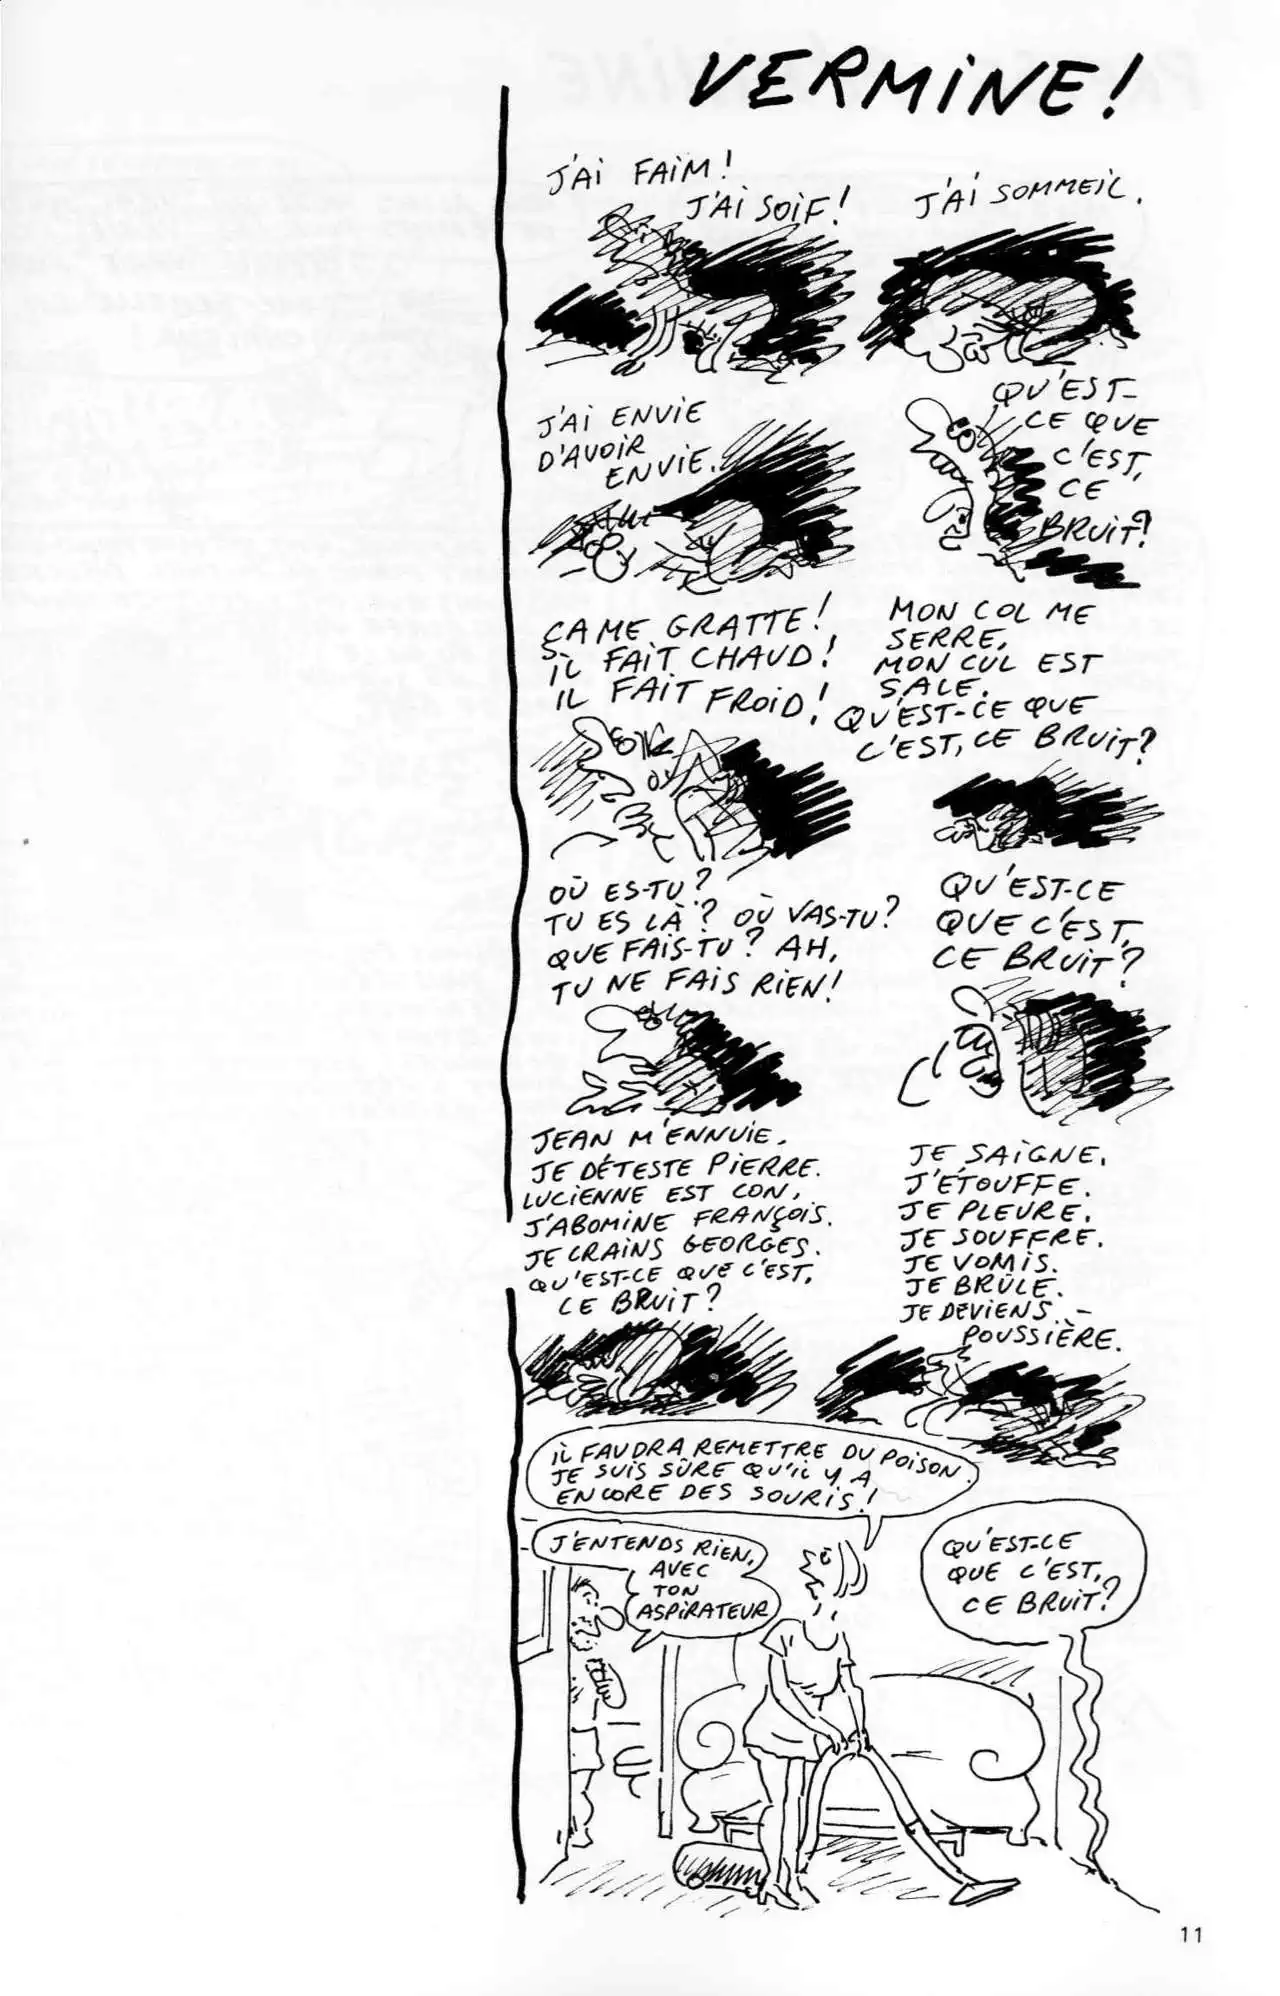 VERMINE!
J'AI FAIM!
J'AI SOIF!
J'AI SOMMEIL.
J'AI ENVIE
D'AVOIR
ENVIE.
QU'EST-
CE QUE
C'EST,
CE
BRUIT?
ÇA ME GRATTE!
IL FAIT CHAUD!
IL FAIT FROID!
MON COL ME
SERRE,
MON CUL EST
SALE.
QU'EST-CE QUE
C'EST, CE BRUIT?
OÙ ES-TU?
TU ES LÀ? OÙ VAS-TU?
QUE FAIS-TU? AH,
TU NE FAIS RIEN!
QU'EST-CE
QUE C'EST,
CE BRUIT?
JEAN M'ENNUIE.
JE DÉTESTE PIERRE.
LUCIENNE EST CON,
J'ABOMINE FRANÇOIS.
JE CRAINS GEORGES.
QU'EST-CE QUE C'EST,
CE BRUIT?
JE SAIGNE.
J'ÉTOUFFE.
JE PLEURE.
JE SOUFFRE.
JE VOMIS.
JE BRÛLE.
JE DEVIENS..-
POUSSIÈRE.
IL FAUDRA REMETTRE DU POISON.
JE SUIS SÛRE QU'IL Y A
ENCORE DES SOURIS!
J'ENTENDS RIEN,
AVEC
TON
ASPIRATEUR
QU'EST-CE
QUE C'EST,
CE BRUIT?
11